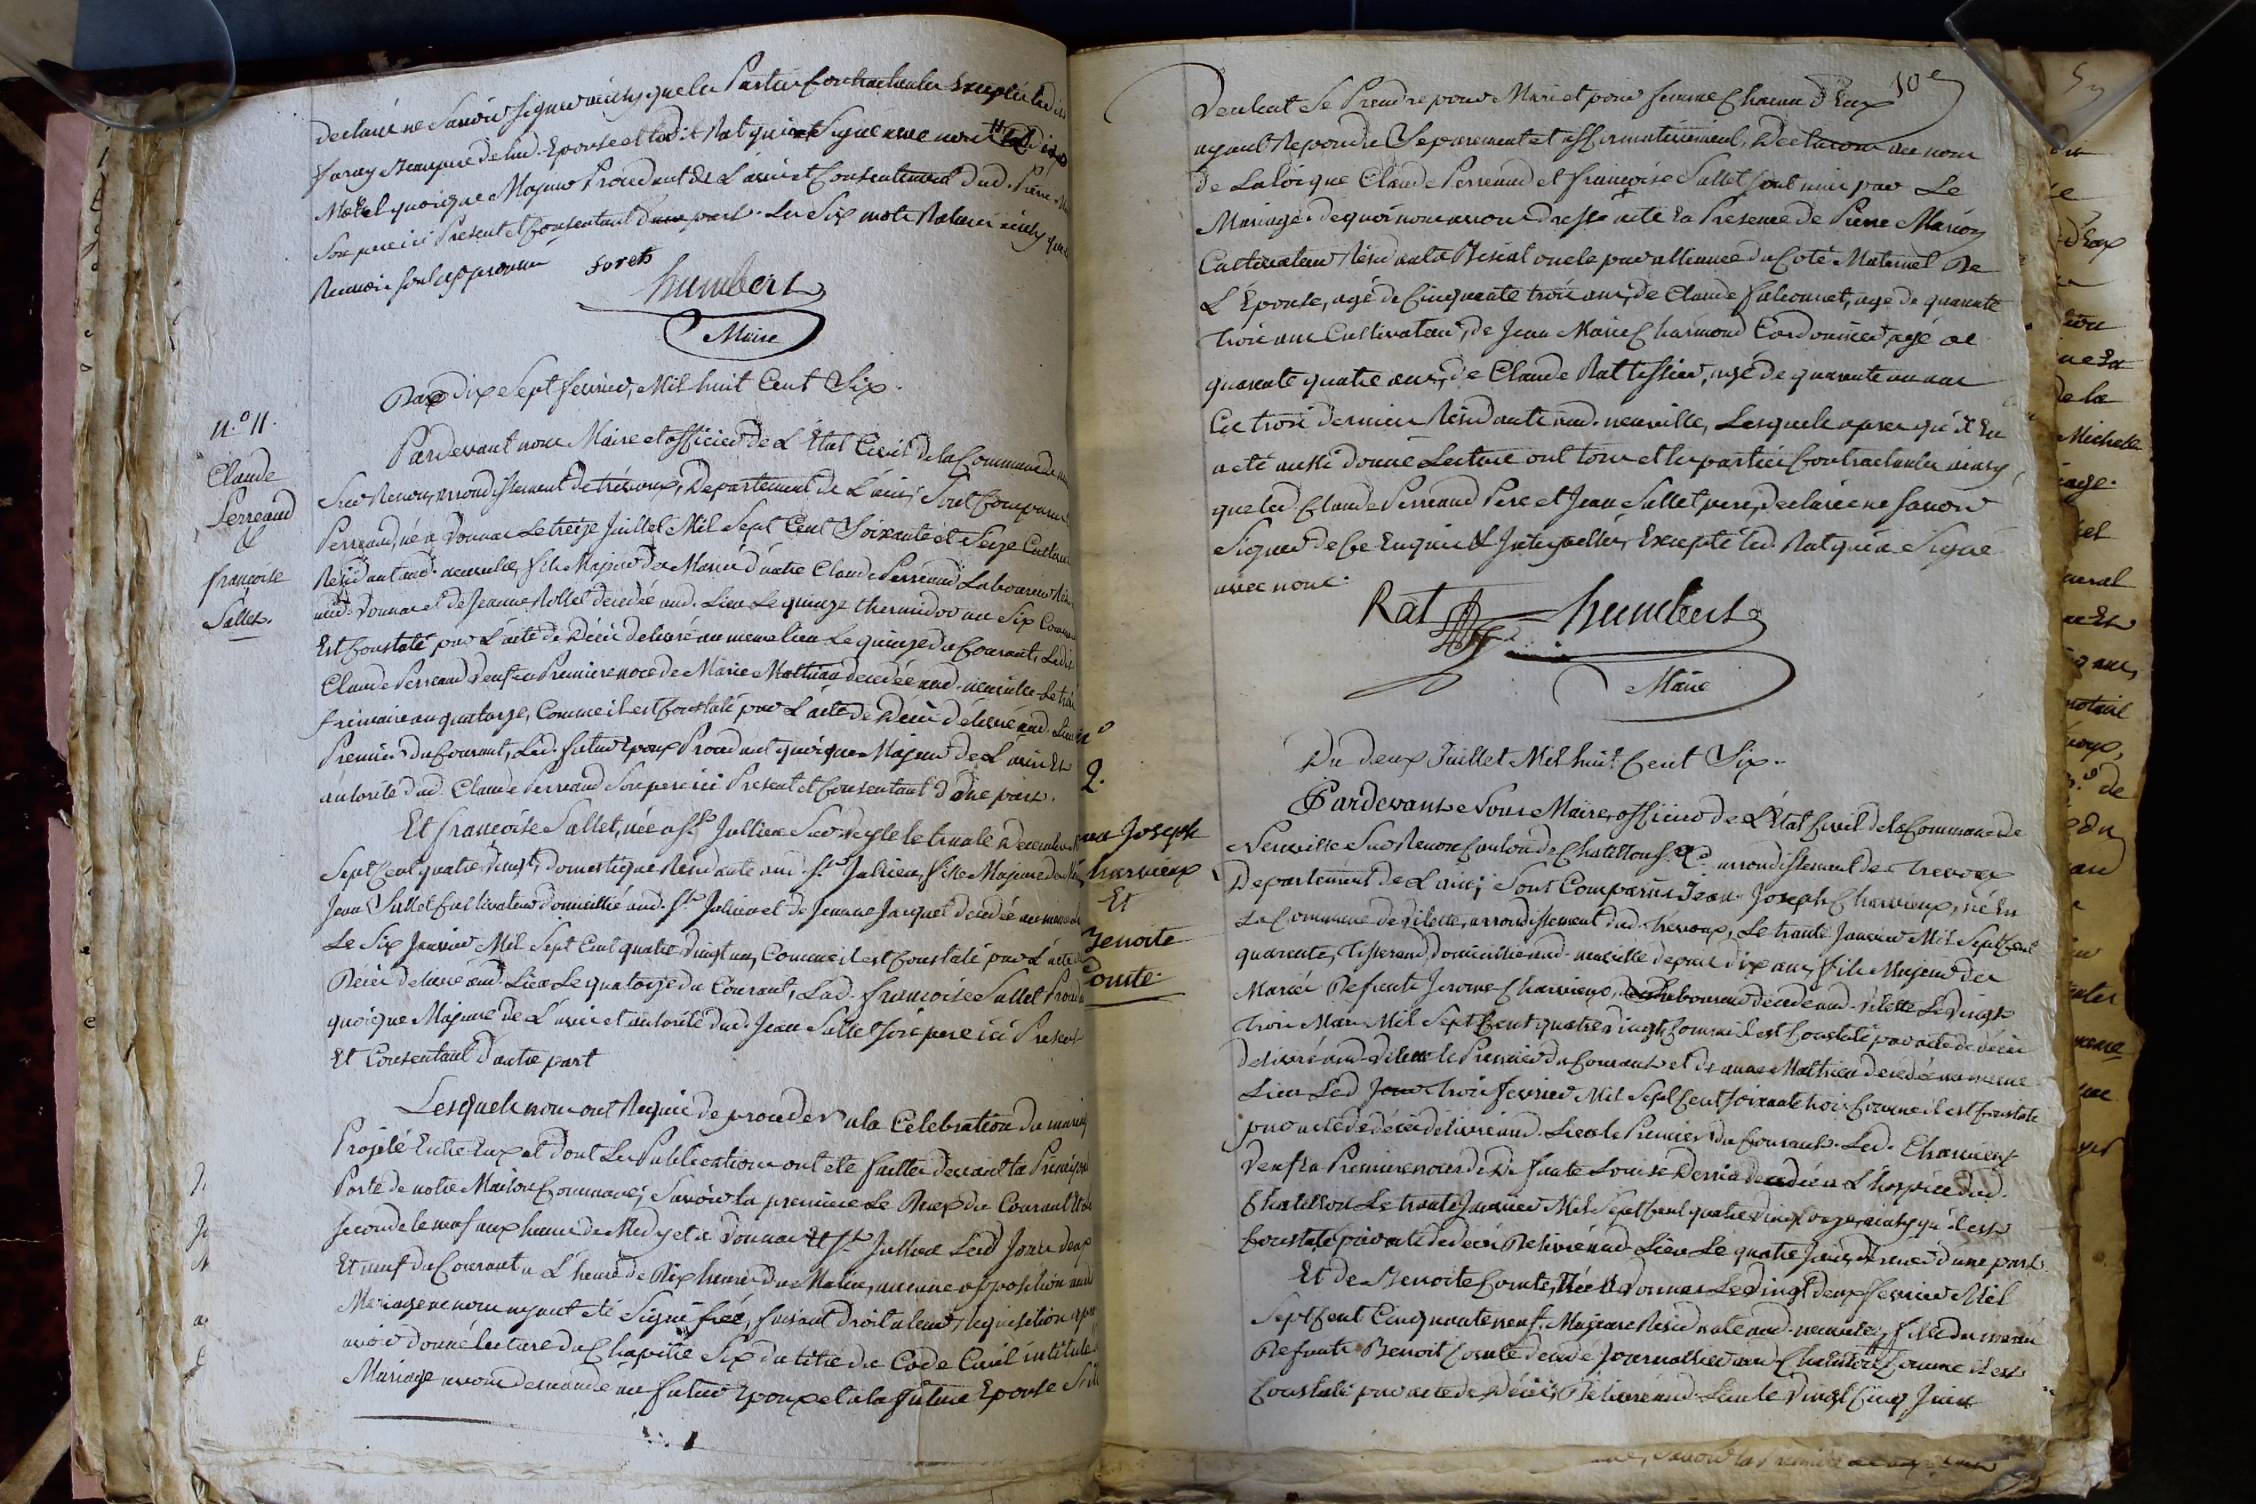 declaré ne Savoir Signer ainsy que les Parties Contractantes Excepté led
faray Beaupere delad. Epouse et ledit Rat qui ont Signé avec nous
Motel quoique Majeur Procedant de L'avis et Consentement dud. Pierre
Son pere ici Present et Consentant d'une part. Les Six mots
sont approuvés
foreth
humbert
Maire
Du dix Sept fevrier, Mil huit Cent Six.
n.° 11.
Claude
Perreaud
&
françoise
Sallet.
Pardevant nous Maire et officier de L'État Civil de la Commune de
Sur Renon, arrondissement de trévoux, Departement de L'ain; Sont Comparus
Perreaud, né a Vonnas Le treize Juillet Mil Sept Cent Soixante et Seize Cultiv
Résidant aud. neuville, fils Majeur de Marié d'autre Claude Perreaud Laboureur
aud. Vonnas et de Jeanne Rollet décédée aud. Lieu Le quinze thermidor an Six Comme
Est Constaté par L'acte de Décès delivré au meme lieu Le quinze du Courant, Ledit
Claude Perreaud Veuf en Premiere noce de Marie Mathieu décedée aud. neuville Le
frimaire an quatorze, Comme il est Constaté par L'acte de Décès délivré aud. Lieu
Premier du Courant, Led. futur Epoux Procedant quoique Majeur de L'avis Et
autorité dud. Claude Perreaud Son pere ici Present et Consentant d'une part.
Et françoise Sallet, née a St. Jullien Sur Veyle le trente Decembre
Sept Cent quatre vingt, domestique Résidante aud. St. Jullien, fille Majeure de
Jean Sallet Cultivateur domicillié aud. St. Jullien et de Jeanne Jacquet decedée au meme
Le Six Janvier Mil Sept Cent quatre vingt un, Comme il est Constaté par L'acte
Décès delivré aud. Lieu Le quatorze du Courant, Lad. françoise Sallet
quoique Majeure de L'avis et autorité dud. Jean Sallet Son pere ici Present
Et Consentant d'autre part
Lesquels nous ont Requis de proceder a la Célebration du mariage
Projeté Entre Eux et dont Les Publications ont été faittes devant la Principale
Porte de notre Maison Commune; Savoir la premiere Le Deux du Courant Et
seconde le neuf aux heures de Midy et a Vonnas Et St. Jullien Lesd Jours deux
Et neuf du Courant a L'heure de Dix heures du Matin, aucune opposition aud
Mariage ne nous ayant été Signifiée, faisant droit a leur Requisition apres
avoir donné lecture du Chapitre Six du titre du Code Civil intitulé
Mariage avons demandé au futur Epoux et a la future Epouse S'ils
10e
Veulent Se Prendre pour Mari et pour femme Chacun D'Eux
ayant Repondu Separement et affirmativement, Declarons au nom
de La loi que Claude Perreaud et françoise Sallet Sont unis par Le
Mariage. de quoi nous avons dressé acte En Presence de Pierre Marion
Cultivateur Résidant a Biziat oncle par alliance du Coté Maternel De
L'Epouse, agé de Cinquante trois ans, de Claude falconnet, age de quarante
trois ans Cultivateur, de Jean Marie Charmond Cordonnier, agé de
quarante quatre ans, de Claude Rat tissier, agé de quarante un ans
Ces trois derniers Résidants aud. neuville, Lesquels apres qu'il En
a été aussi donné Lecture ont tous et les parties Contractantes ainsy
que led. Claude Perreaud Pere et Jean Sallet pere, declaré ne Savoir
Signer de Ce Enquis & Interpellés, Excepté led. Rat qui a Signé
avec nous.
Rat humbert
Maire
n°
2.
Joseph
Charvieux
Et
Benoite
Comte.
Du deux Juillet Mil huit Cent Six.
Pardevant Nous Maire, officier de L'État Civil de la Commune de
Neuville Sur Renon Canton de Chatillon S. C. arrondissement de Trevoux
Departement de L'ain; Sont Comparus Jean Joseph Charvieux, né En
La Commune de Vilette, arrondissement dud. Trevoux, Le trente Janvier Mil Sept Cent
quarente, tisserand, domicillié aud. neuville depuis dix ans, fils Majeur des
Mariés Defunts Jerome Charvieux, Laboureur décédé aud. Vilette Le Vingt
Trois Mars Mil Sept Cent quatre vingt Comme il est Constaté par acte de décès
delivré aud. Vilette le Premier du Courant et de anne Mathieu décedée au meme
Lieu Led Jour trois fevrier Mil Sept Cent Soixante trois Comme il est Constaté
par acte de décès délivré aud. Lieu le Premier du Courant. Led. Charvieux
Veuf En Premiere noces de Defunte Louise Derria décedée a L'hospice dud.
Chatillon Le trente Janvier Mil Sept Cent quatre vingt onze, ainsy qu'il est
Constaté par acte de décès Delivré aud. Lieu Le quatre Juin, dernier d'une part.
Et de Benoite Comte, Née a Vonnas Le Vingt deux fevrier Mil
Sept Cent Cinquante neuf, Majeure Résidante aud. neuville, fille du marié
Defunts Benoit Comte decedé Journallier aud. Chatillon Comme il est
Constaté par acte de Décès, Delivré aud. Lieu le Vingt Cinq Juin